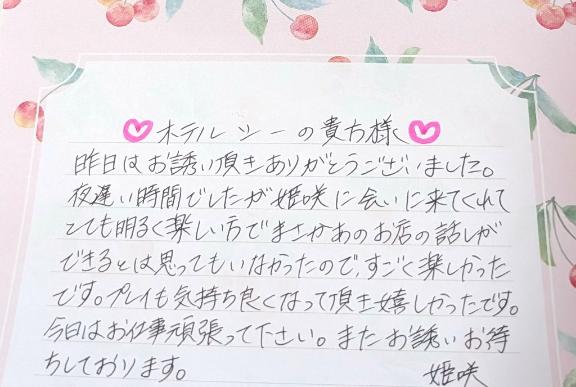 ♡ホテルシーの貴方様♡
昨日はお誘い頂きありがとうございました。
夜遅い時間でしたが姫咲に会いに来てくれて
とても明るく楽しい方でまさかあのお店の話しが
できるとは思ってもいなかったので、すごく楽しかった
です。プレイも気持ち良くなって頂き嬉しかったです。
今日はお仕事頑張って下さい。またお誘いお待
ちしております。
姫咲